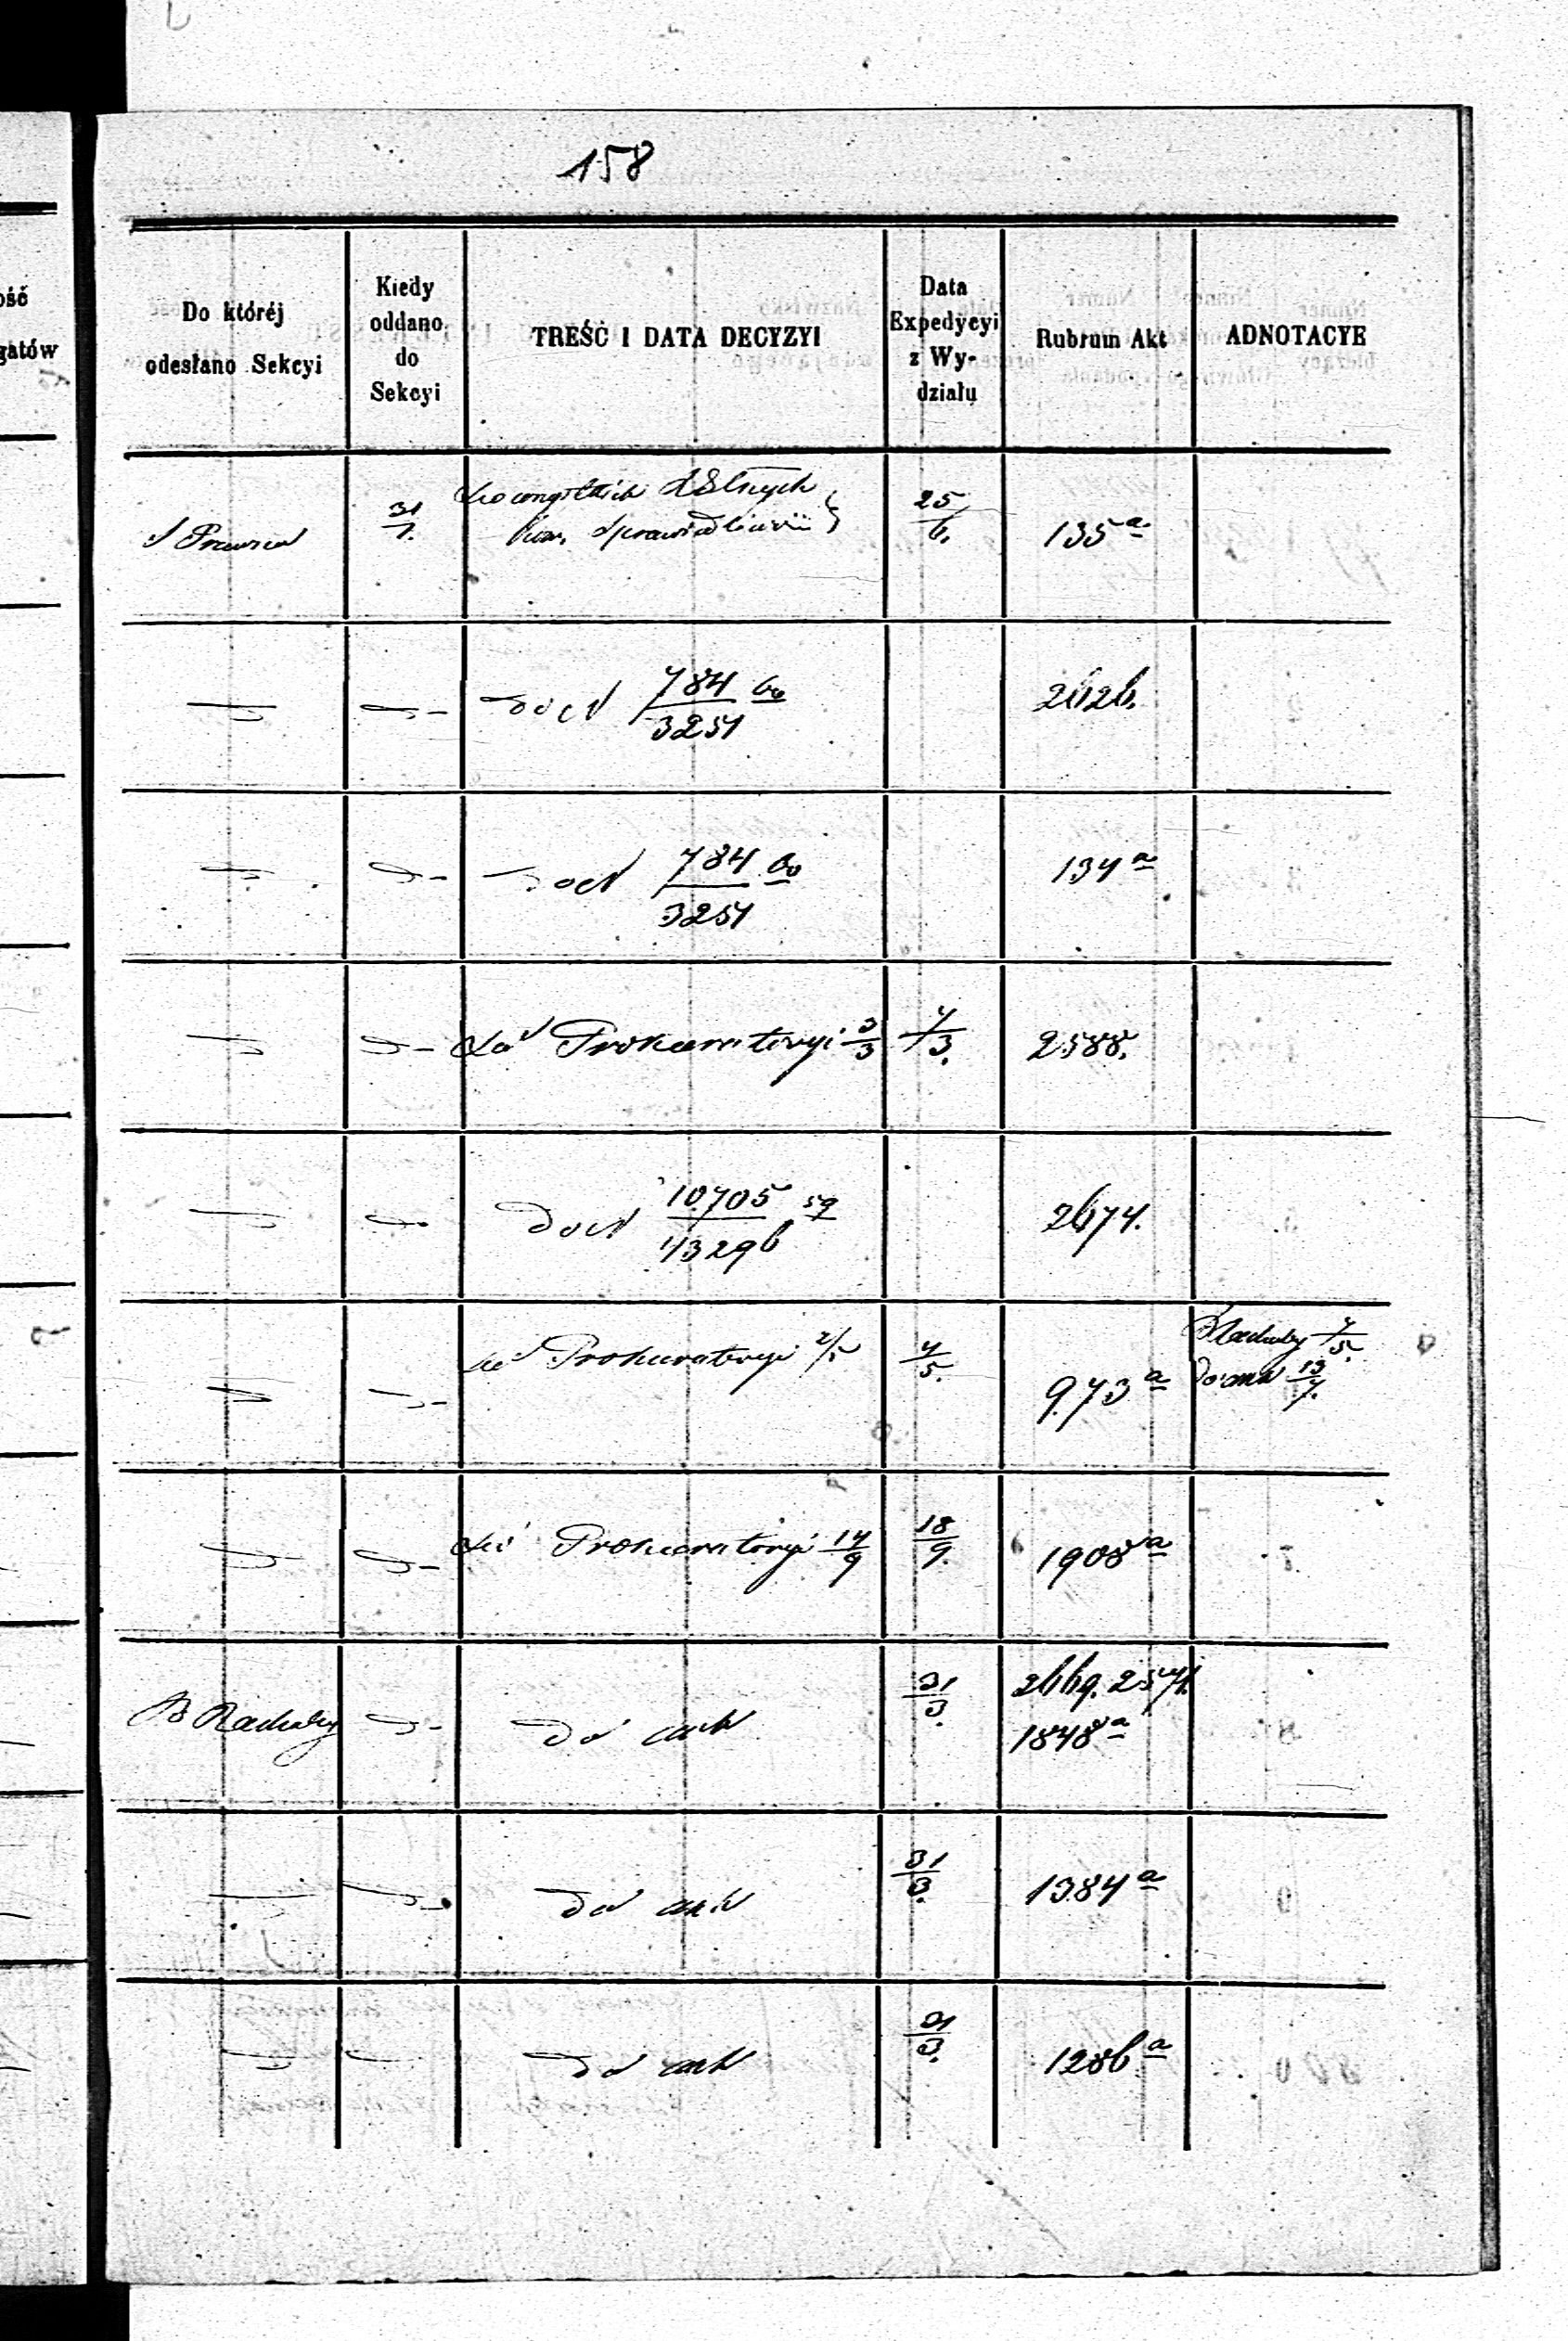 158
ość
gatów
Do któréj
odesłano Sekcyi
Kiedy
oddano
do
Sekcyi
TREŚĆ I DATA DECYZYI
Data
Expedycyi
z Wy-
działu
Rubrum Akt
ADNOTACYE
31/1.
kom. Sprawiedliwości
25/6.
135 a
do N 784/3251 60
2626.
do N 784/3251 60
134 a
do Prokuratoryi 3/3
4/3.
2588.
do N 10705/43296 59
2674.
do Prokuratoryi 2/5
4/5.
973 a
Rachuby 7/5.
do akt 13/7.
do Prokuratoryi 14/9
18/9.
1908 a
B Rachuby
do akt
31/3.
2669. 2574.
1848 a
do akt
31/3.
1384 a
do akt
31/3.
1286 a